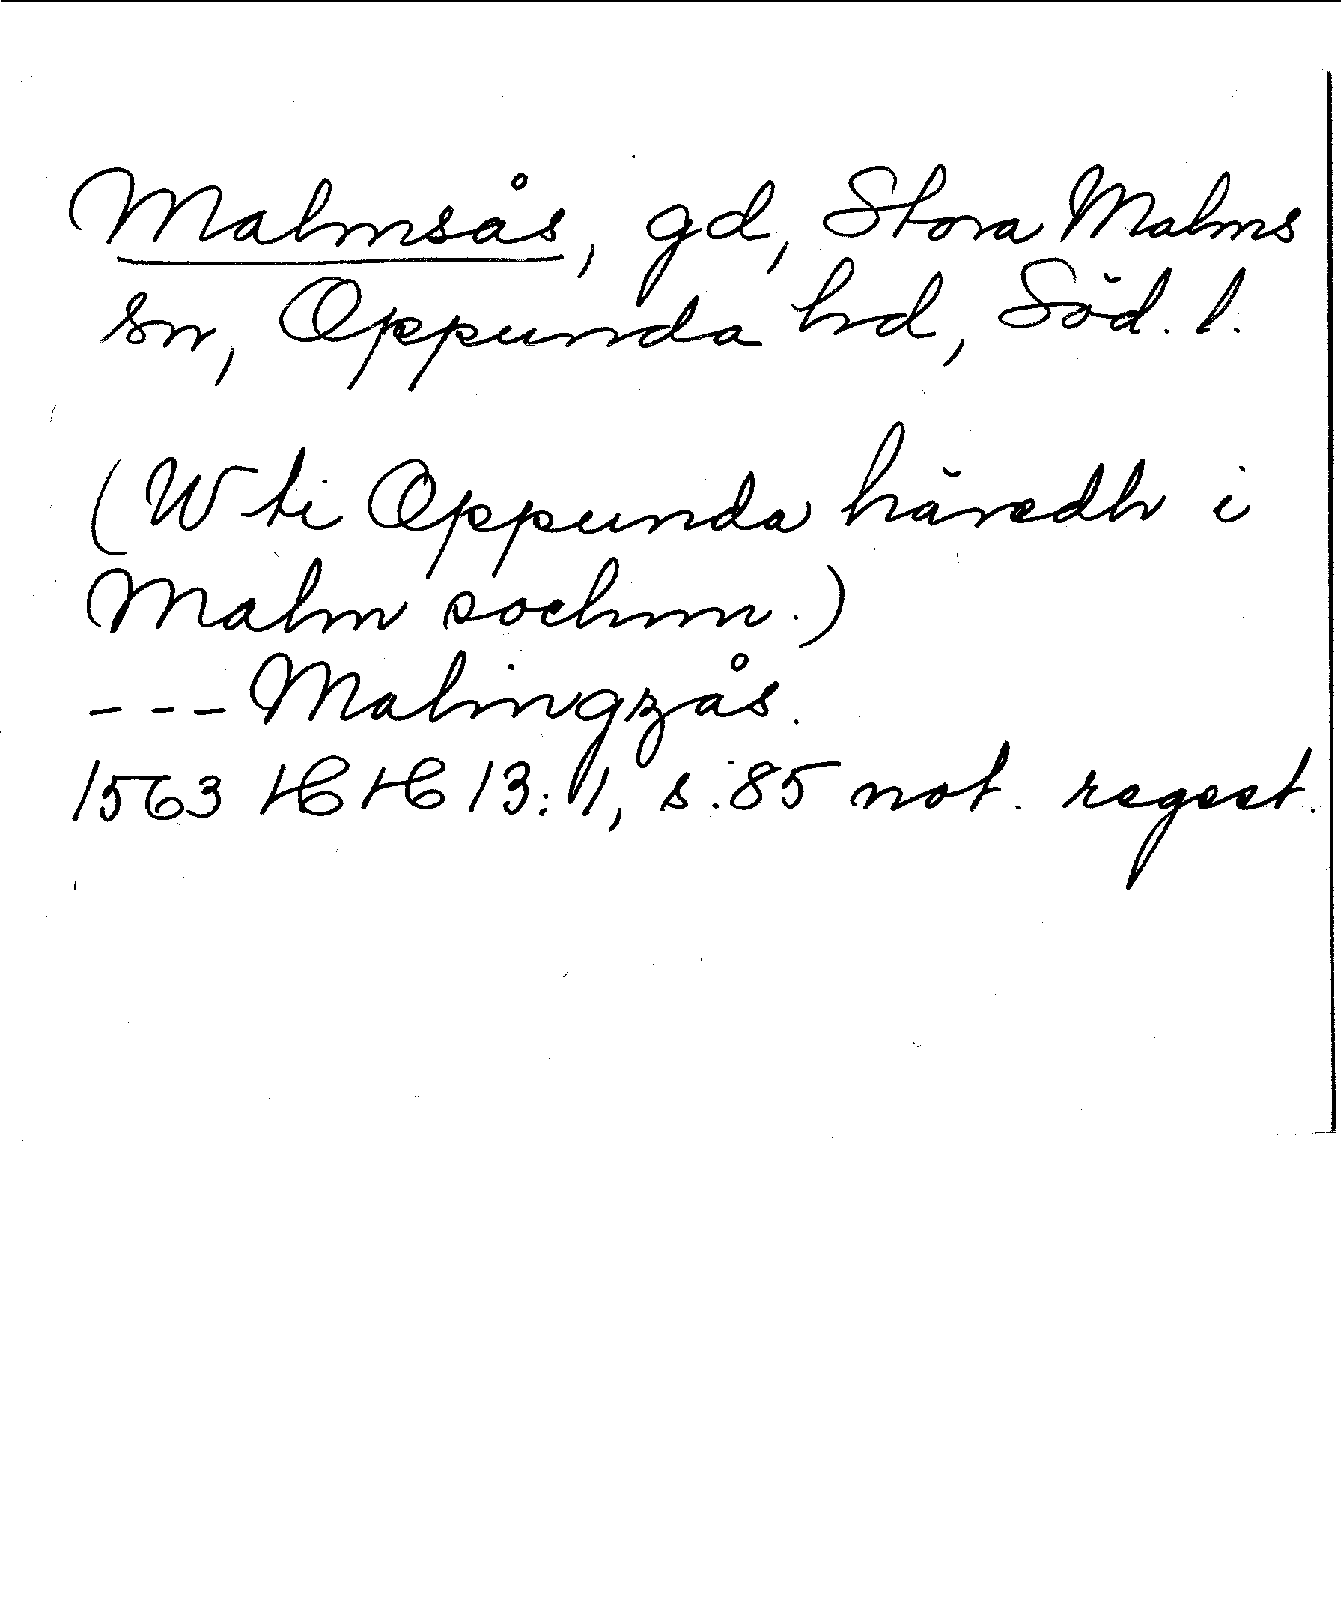 Malmsås, gd, Stora Malms
sn, Oppunda hd, Söd. l.
(Wti Oppunda häredh i
Malm sochnn.)
--- Malingzås.
1563 HH 13:1, s. 85 not. regest.